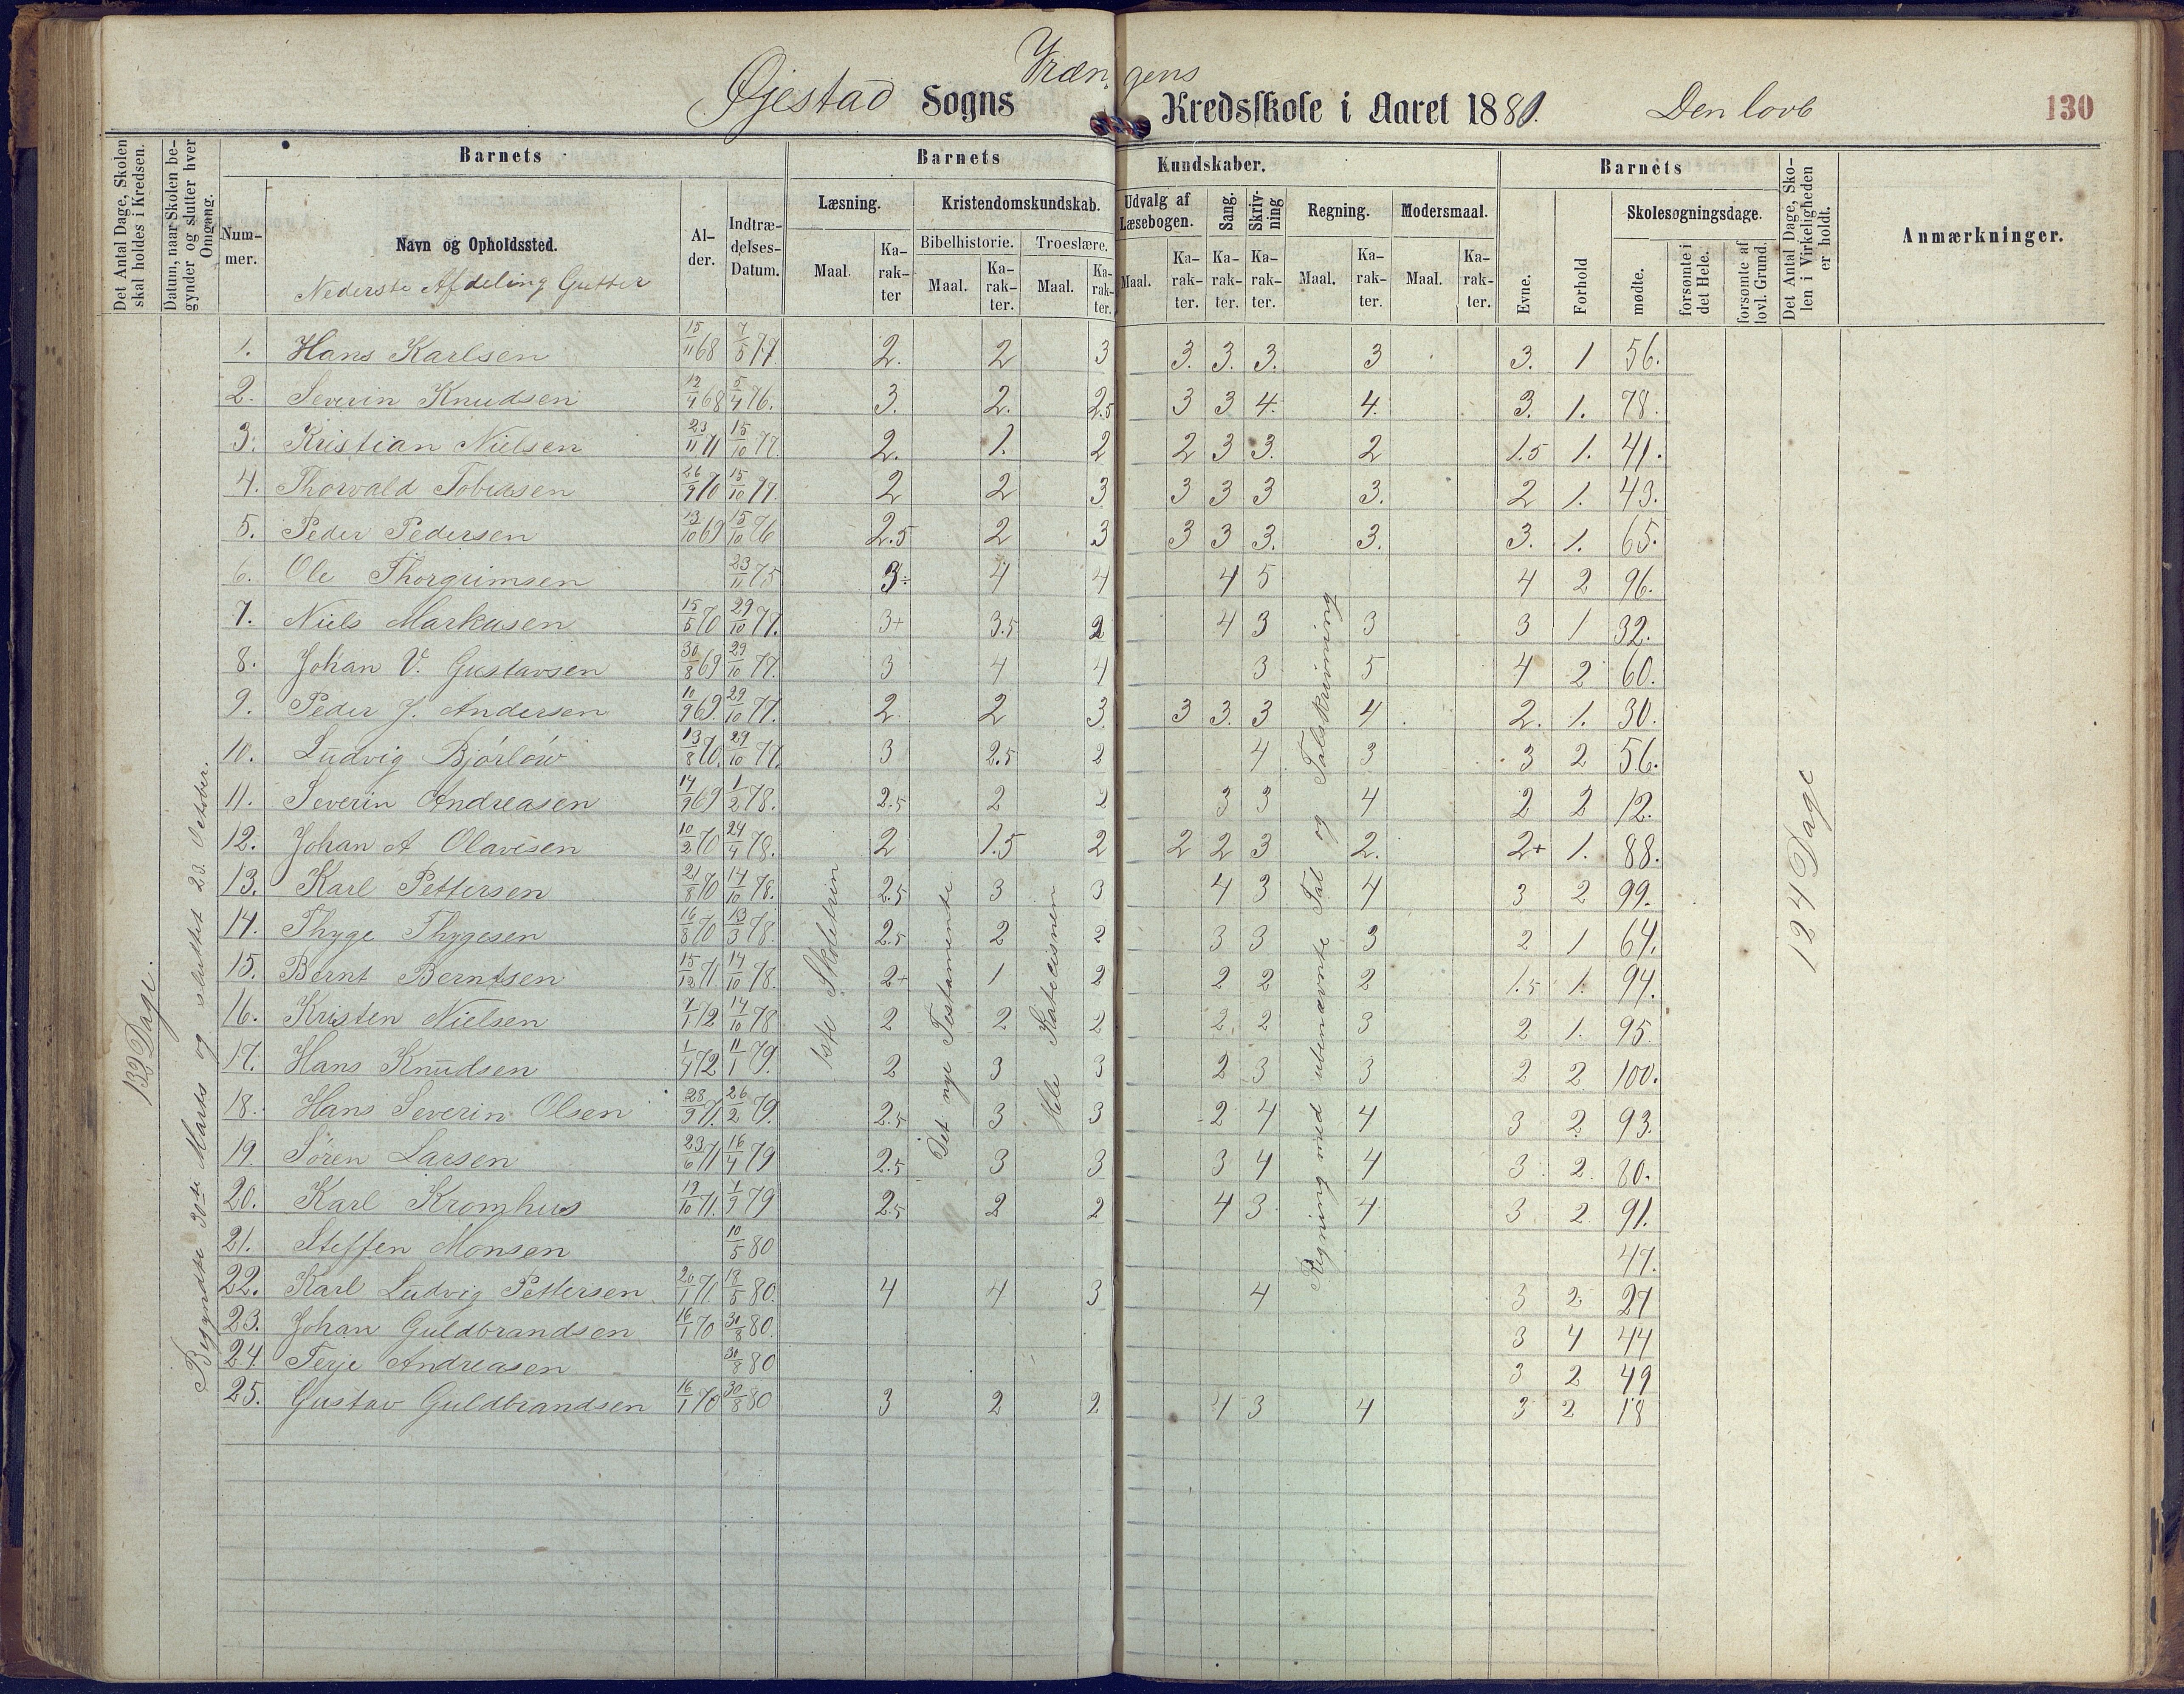 Vrængens
Øjestad Sogns Kredsskole i Aaret 1881. Den lovb 130
Det Antal Dage, Skolen skal holdes i Kredsen.
Datum, naar Skolen begynder og slutter hver Omgang.
Barnets
Barnets Kundskaber.
Barnets
Det Antal Dage, Skolen i Virkeligheden er holdt.
Anmærkninger.
Nummer. Navn og Opholdssted. Alder. Indtrædelses-Datum.
Læsning. Kristendomskundskab. Udvalg af Læsebogen. Sang. Skrivning Regning. Modersmaal.
Evne. Forhold Skolesøgningsdage.
Bibelhistorie. Troeslære.
Maal. Karakter Maal. Karakter. Maal. Karakter. Maal. Karakter. Karakter. Karakter. Maal. Karakter. Maal. Karakter.
mødte. forsømte i det Hele. forsømte af lovl. Grund.
Nederste Afdeling Gutter
1. Hans Karlsen 15/11 68 7/5 77. 2. 2 3 3. 3. 3. 3 3. 1 56.
2. Severin Knudsen 12/4 68 5/4 76. 3. 2. 2.5 3 3 4. 4. 3. 1. 78.
3. Kristian Nielsen 23/11 71 15/10 77. 2. 1. 2 2 3 3. 2 1.5 1. 41.
4. Thorvald Tobiasen 26/9 70 15/10 77. 2 2 3 3 3 3 3. 2 1. 43.
5. Peder Pedersen 13/10 69 15/10 76 2.5 2 3 3 3 3. 3. 3. 1. 65.
6. Ole Thorgrimsen 23/11 75 3÷ 4 4 4 5 4 2 96.
7. Niels Markusen 15/5 70 29/10 77. 3+ 3.5 2 4 3 3 3 1 32.
8. Johan V. Gustavsen 30/8 69 29/10 77. 3 4 4 3 5 4 2 60.
9. Peder J. Andersen 10/9 69. 29/10 77. 2. 2 3. 3 3. 3 4 2. 1. 30.
10. Ludvig Bjórlów 13/8 70. 29/10 77. 3 2.5 2 4 3 3 2 56.
11. Severin Andreasen 14/9 69 1/2 78. 2.5 2 2 3 3 4 2 2 12.
12. Johan A Olavesen 10/2 70 24/4 78. 2 1.5 2 2 2 3 2. 2+ 1. 88.
13. Karl Pettersen 21/8 70 14/10 78. 2.5 3 3 4 3 4 3 2 99.
14. Thyge Thygesen 16/8 70 13/3 78. 2.5 2 2 3 3 3 2 1 64.
15. Bernt Berntsen 15/12 71. 14/10 78. 2+ 1 2 2 2 2 1.5 1. 94.
16. Kristen Nielsen 7/1 72 14/10 78 2 2 2 2. 2 3 2 1. 95.
17. Hans Knudsen 1/4 72 11/1 79. 2 3 3 2 3 3 2 2 100.
18. Hans Severin Olsen 28/9 71. 26/2 79. 2.5 3 3 2 4 4 3 2 93.
19. Sören Larsen 23/6 71 16/4 79 2.5 3 3 3 4 4 3 2 80.
20. Karl Kromhus 19/10 71. 1/9 79 2.5 2 2 4 3 4 3 2 91.
21. Steffen Monsen 10/5 80 47.
22. Karl Ludvig Pettersen 20/1 71 18/5 80. 4 4 3 4 3 2 27
23. Johan Guldbrandsen 16/1 70 30/8 80. 3 4 44
24. Terje Andreasen 30/8 80 3 2 49
25. Gustav Guldbrandsen 16/1 70 30/8 80 3 2 2 4 3 4 3 2 18
132 Dage.
Begyndte 30te Marts og sluttet 23. October.
1ste Skoletrin
Det nye Testamente
Hele Katecismen
Regning med ubenævnte Tal og Talskrivning
124 Dage